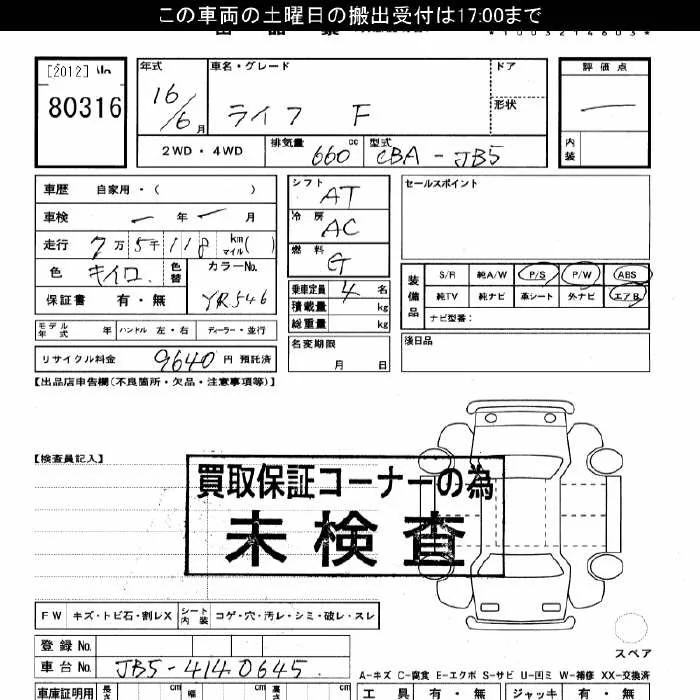 この車両の土曜日の搬出受付は17:00まで
[2012] No.
80316
年式
16/6月
車名・グレード
ライフ F
ドア
形状
評価点
内装
2WD・4WD
排気量
660 cc
型式
CBA-JB5
車歴 自家用・( )
車検 ー 年 ー 月
走行 7万 5千 118 km マイル( )
色 キイロ 色替
カラーNo.
YR546
保証書 有・無
シフト
AT
冷房
AC
燃料
G
乗車定員 4 名
積載量 kg
総重量 kg
名変期限
月 日
セールスポイント
装備品
S/R 純A/W P/S P/W ABS
純TV 純ナビ 革シート 外ナビ エアB
ナビ型番:
モデル年式 年 ハンドル 左・右 ディーラー・並行
リサイクル料金 9640 円 預託済
注目品
【出品店申告欄(不良箇所・欠品・注意事項等)】
【検査員記入】
買取保証コーナーの為
未検査
FW キズ・トビ石・割レX シート内装 コゲ・穴・汚レ・シミ・破レ・スレ
登録No.
車台No. JB5-4140645
スペア
A-キズ C-腐食 E-エクボ S-サビ U-凹ミ W-補修 XX-交換済
車庫証明用 長さ cm 幅 cm 高さ cm
工具 有・無 ジャッキ 有・無